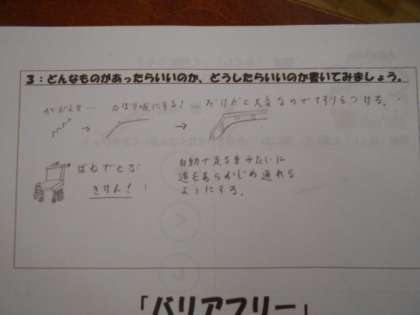 3：どんなものがあったらいいのか、どうしたらいいのか書いてみましょう。
かいだんを… なだらか坂にする！ だけだと大変なので手すりをつける。
ばねでとぶ
きりん！！
自動で走る車みたいに
道をあらかじめ通れる
ようにする。
「バリアフリー」